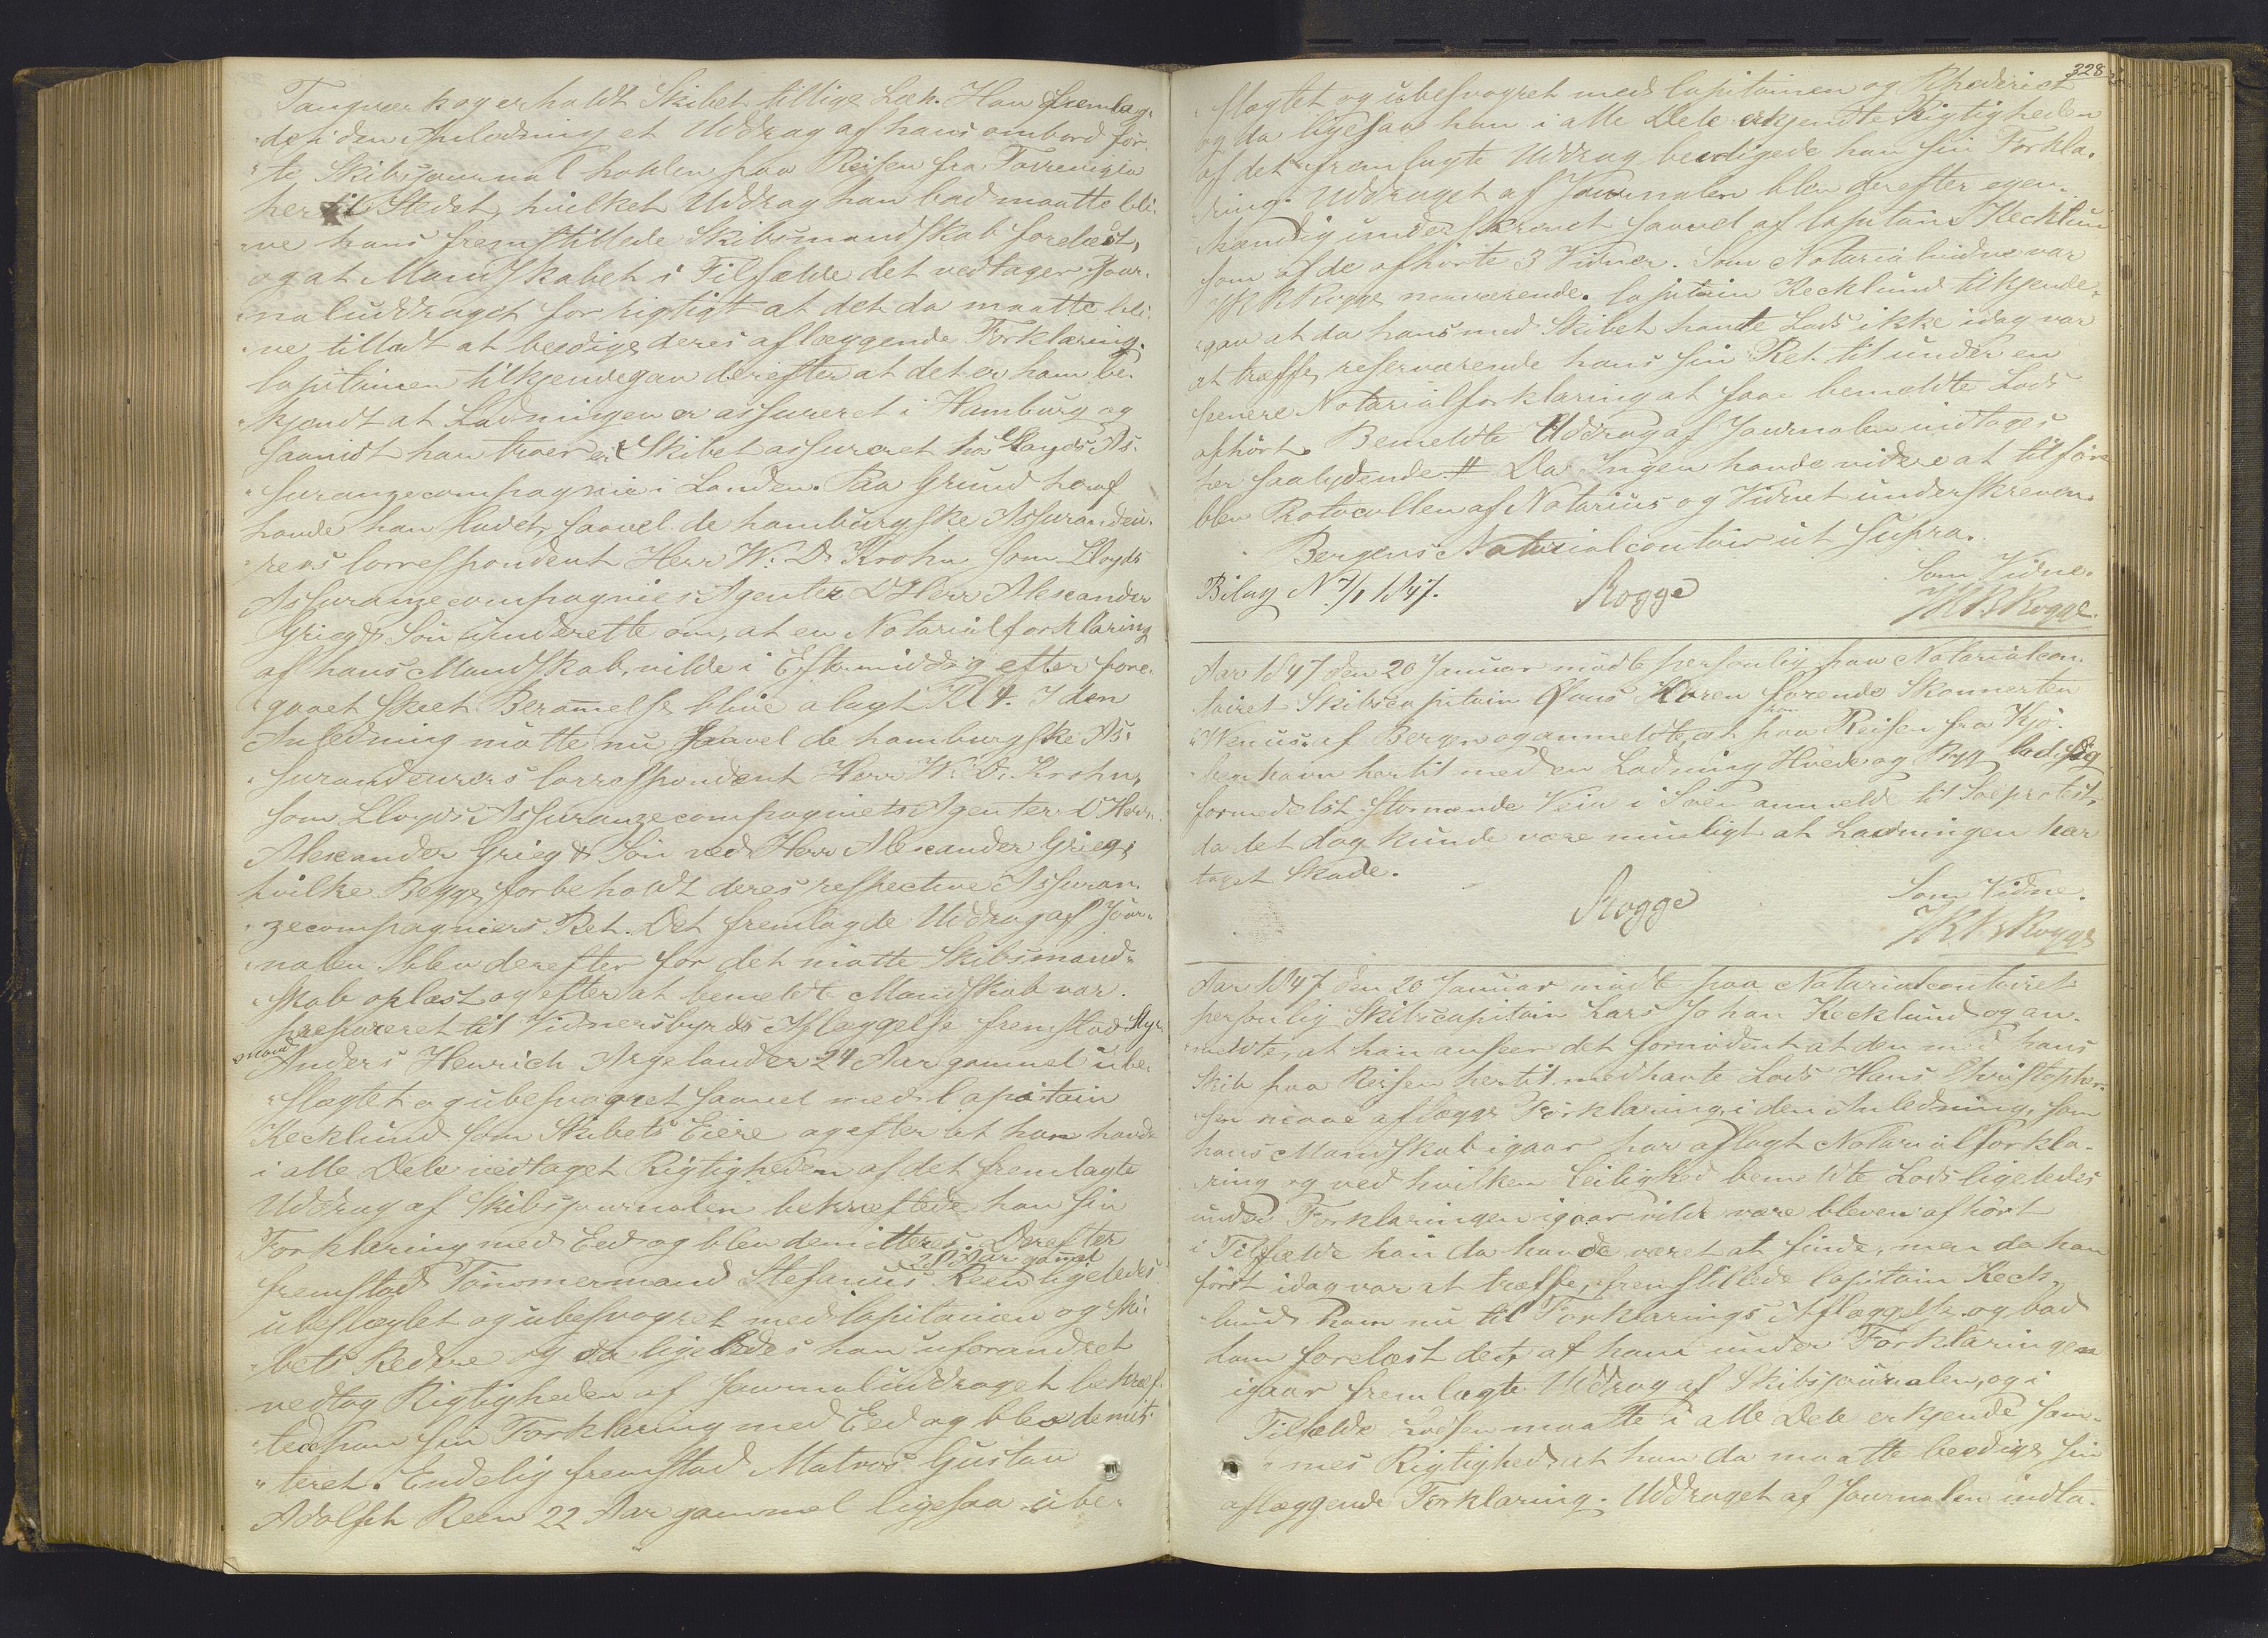 Tougværk og erholdt Skibet tillige Læk. Han fremlag,
"de i den Anledning et Uddrag af hans ombord för,
"te Skibsjournal holden paa Reisen fra Torrevigia
hertil Stedet, hvilket Uddrag han bad maatte bli,
"ve hans fremstillede Skibsmandskab forelæst,
og at Mandskabet i Tilfælde det vedtager Jour,
"naluddraget for rigtigt at det da maatte bli,
"ve tilladt at beedige deres aflæggende Forklaring.
Capitainen tilkjendegav derefter at det er ham be,
"kjendt at Ladningen er assureret i Hamburg og
saavidt han troer er Skibet assureret hos Lloyds As,
"suranzecompagnie i London. Paa Grund heraf
havde han ladet, saavel de hamburgske Assurandeu,
"rers Correspondent Herr W. D. Krohn som Lloyds
Assuranzecompagnies Agenter D'Herr Alexander
Grieg & Sön underette om, at en Notarialforklaring
af hans Mandskab, vilde i Eftermiddag efter fore,
"gaaet skeet Berammelse blive aflagt Kl 4. I den
Anledning mötte nu saavel de hamburgske As,
"surandeurers Correspondent Herr W. D. Krohn,
som Lloyds Assuranzecompagniets Agenter D'Herr.
Alexander Grieg & Sön ved Herr Alexander Grieg,
hvilke Begge forbeholdt deres respective Assuran,
"zecompagniers Ret. Det fremlagde Uddrag af Jour,
"nalen blev derefter for det mötte Skibsmand,
"skab oplæst og efter at bemeldte Mandskab var
præpareret til Vidnersbyrds Aflæggelse fremstod Styr,
mand
Anders Henrich Argelander 24 Aar gammel ube,
"slægtet og ubesvogret saavel med Capitain
Kecklund som Skibets Eiere og efter at han havde
i alle Dele vedtaget Rigtigheden af det fremlagte
Uddrag af Skibsjournalen bekræftede han sin
Forklaring med Eed og blev demitteret. Derefter
28 Aar gamel
fremstod Tömmermand Stefanus Reen ligeledes
ubeslægtet og ubesvogret med Capitainen og Ski,
"bets Redere og da ligeledes han uforandret
vedtog Rigtigheden af Journaluddraget bekræf,
"tede han sin Forklaring med Eed og blev demit,
"teret. Endelig fremstod Matros Gustav
Adolph Reen 22 Aar gammel ligesaa ube,
328
slægtet og ubesvogret med Capitainen og Rhederiet
og da ligesaa han i alle Dele erkjendte Rigtigheden
af det fremlagte Uddrag beedigede han sin Forkla,
"ring. Uddraget af Journalen blev derefter egen,
"hændig underskrevet saavel af Capitain Kecklund
som af de afhörte 3 Vidner. Som Notarialvidne var
JKB Rogge nærværende. Capitain Kecklund tilkjende,
"gav at da hans med Skibet havte Lods ikke idag var
at træffe, reserverende hans sin Ret til under en
senere Notarialforklaring at faae bemeldte Lods
afhört. Bemeldte Uddrag af Journalen indtages
her saalydende # Da Ingen havde videre at tilföre
blev Protocollen af Notarius og Vidnet underskreven.
Bergens Notarialcontoir ut supra.
Bilag N 7/1 1847.
Rogge
Som Vidne.
JKB Rogge.
Aar 1847 den 20 Januar mödte personlig paa Notarialcon,
toiret Skibscapitain Hans förende Skonnerten
"Venus" af Bergen og anmeldte, at han paa Reisen fra Kjö,
"benhavn hertil med en Ladning Hvede og Byg lod sig
formedelst stormende Veir i Söen anmelde til Söeprotest,
da det dog kunde være muligt at Ladningen har
taget Skade.
Rogge
Som Vidne.
JKB Rogge
Aar 1847 den 20 Januar mödte paa Notarialcontoiret
personlig Skibscapitain Lars Johan Kecklund og an,
"meldte, at han anseer det fornödent at den med hans
Skib paa Reisen hertil med havte Lods Hans Christopher,
"sen maae aflægge Forklaring, i den Anledning, som
hans Mandskab igaar har aflagt Notarialforkla,
"ring og ved hvilken Leilighed bemeldte Lods ligeledes
under Forklaringen igaar vilde være bleven afhört
i Tilfælde han da havde været at finde, men da han
först idag var at træffe, fremstillede Capitain Keck,
"lund ham nu til Forklarings Aflæggelse og bad
ham forelæst det, af ham under Forklaringen
igaar fremlagte Uddrag af Skibsjournalen, og i
Tilfælde Lodsen maatte i alle Dele erkjende sam,
"mes Rigtighed at han da maatte beedige sin
aflæggende Forklaring. Uddraget af Journalen indta,